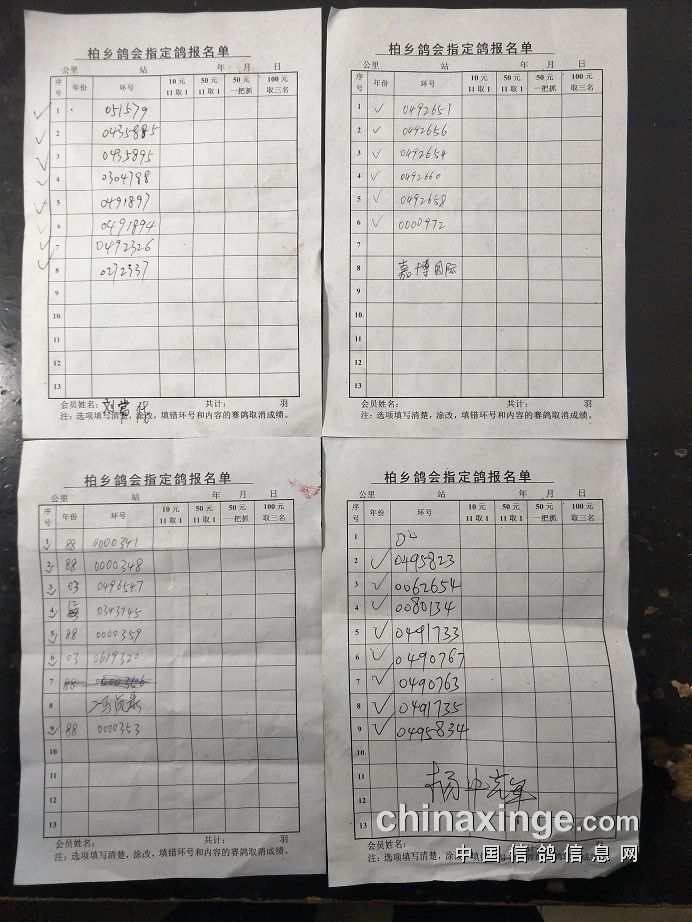 柏乡鸽会指定鸽报名单
公里 站 年 月 日
序号 年份 环号 10 元 11 取 1 50 元 11 取 1 50 元 一把抓 100 元 取三名
1 051579
2 0435885
3 0435895
4 0304798
5 0491897
6 0491894
7 0492326
8 0272337
9
10
11
12
13
会员姓名： 共计： 羽
注：选项填写清楚，涂改，填错环号和内容的赛鸽取消成绩。
柏乡鸽会指定鸽报名单
公里 站 年 月 日
序号 年份 环号 10 元 11 取 1 50 元 11 取 1 50 元 一把抓 100 元 取三名
1 ✓ 0492651
2 ✓ 0492656
3 ✓ 0492654
4 ✓ 0492660
5 ✓ 0492658
6 ✓ 0000972
7
8 嘉博国际
9
10
11
12
13
会员姓名： 共计： 羽
注：选项填写清楚，涂改，填错环号和内容的赛鸽取消成绩。
柏乡鸽会指定鸽报名单
公里 站 年 月 日
序号 年份 环号 10 元 11 取 1 50 元 11 取 1 50 元 一把抓 100 元 取三名
1 88 0000341
2 88 0000348
3 03 0496547
4 0343745
5 88 0000359
6 03 0619320
7 88 0000356
8
9 88 0000353
10
11
12
13
会员姓名： 共计： 羽
注：选项填写清楚，涂改，填错环号和内容的赛鸽取消成绩。
柏乡鸽会指定鸽报名单
公里 站 年 月 日
序号 年份 环号 10 元 11 取 1 50 元 11 取 1 50 元 一把抓 100 元 取三名
1
2 ✓ 0495823
3 ✓ 0062654
4 ✓ 0080134
5 ✓ 0491733
6 ✓ 0490767
7 ✓ 0490763
8 ✓ 0491735
9 ✓ 0495834
10
11
12
13
会员姓名： 共计： 羽
注：选项填写清楚，涂改，填错环号和内容的赛鸽取消成绩。
chinaxinge.com
中国信鸽信息网